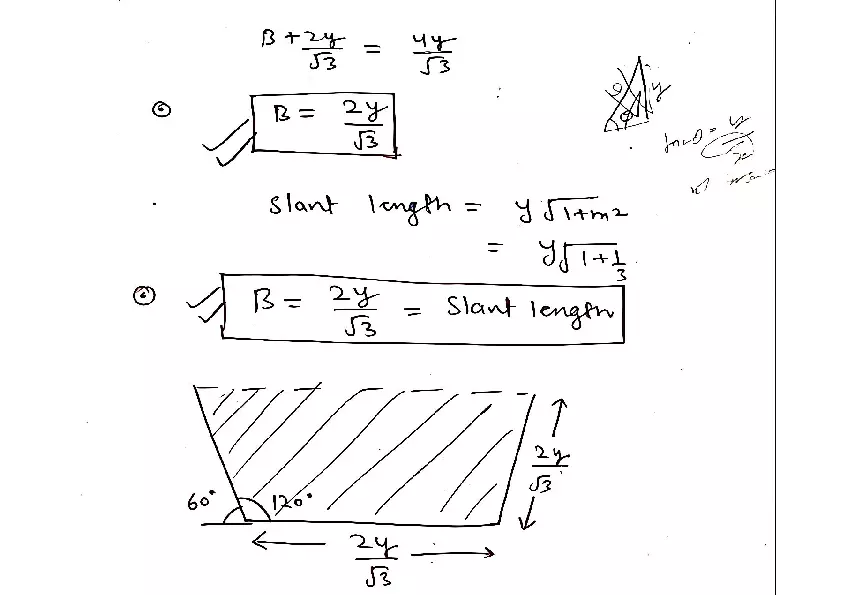 B + 2y/√3 = 4y/√3
B = 2y/√3
Slant length = y√1+m2
= y√1+1/3
B = 2y/√3 = Slant length
θ
y
2y/√3
60° 120°
2y/√3